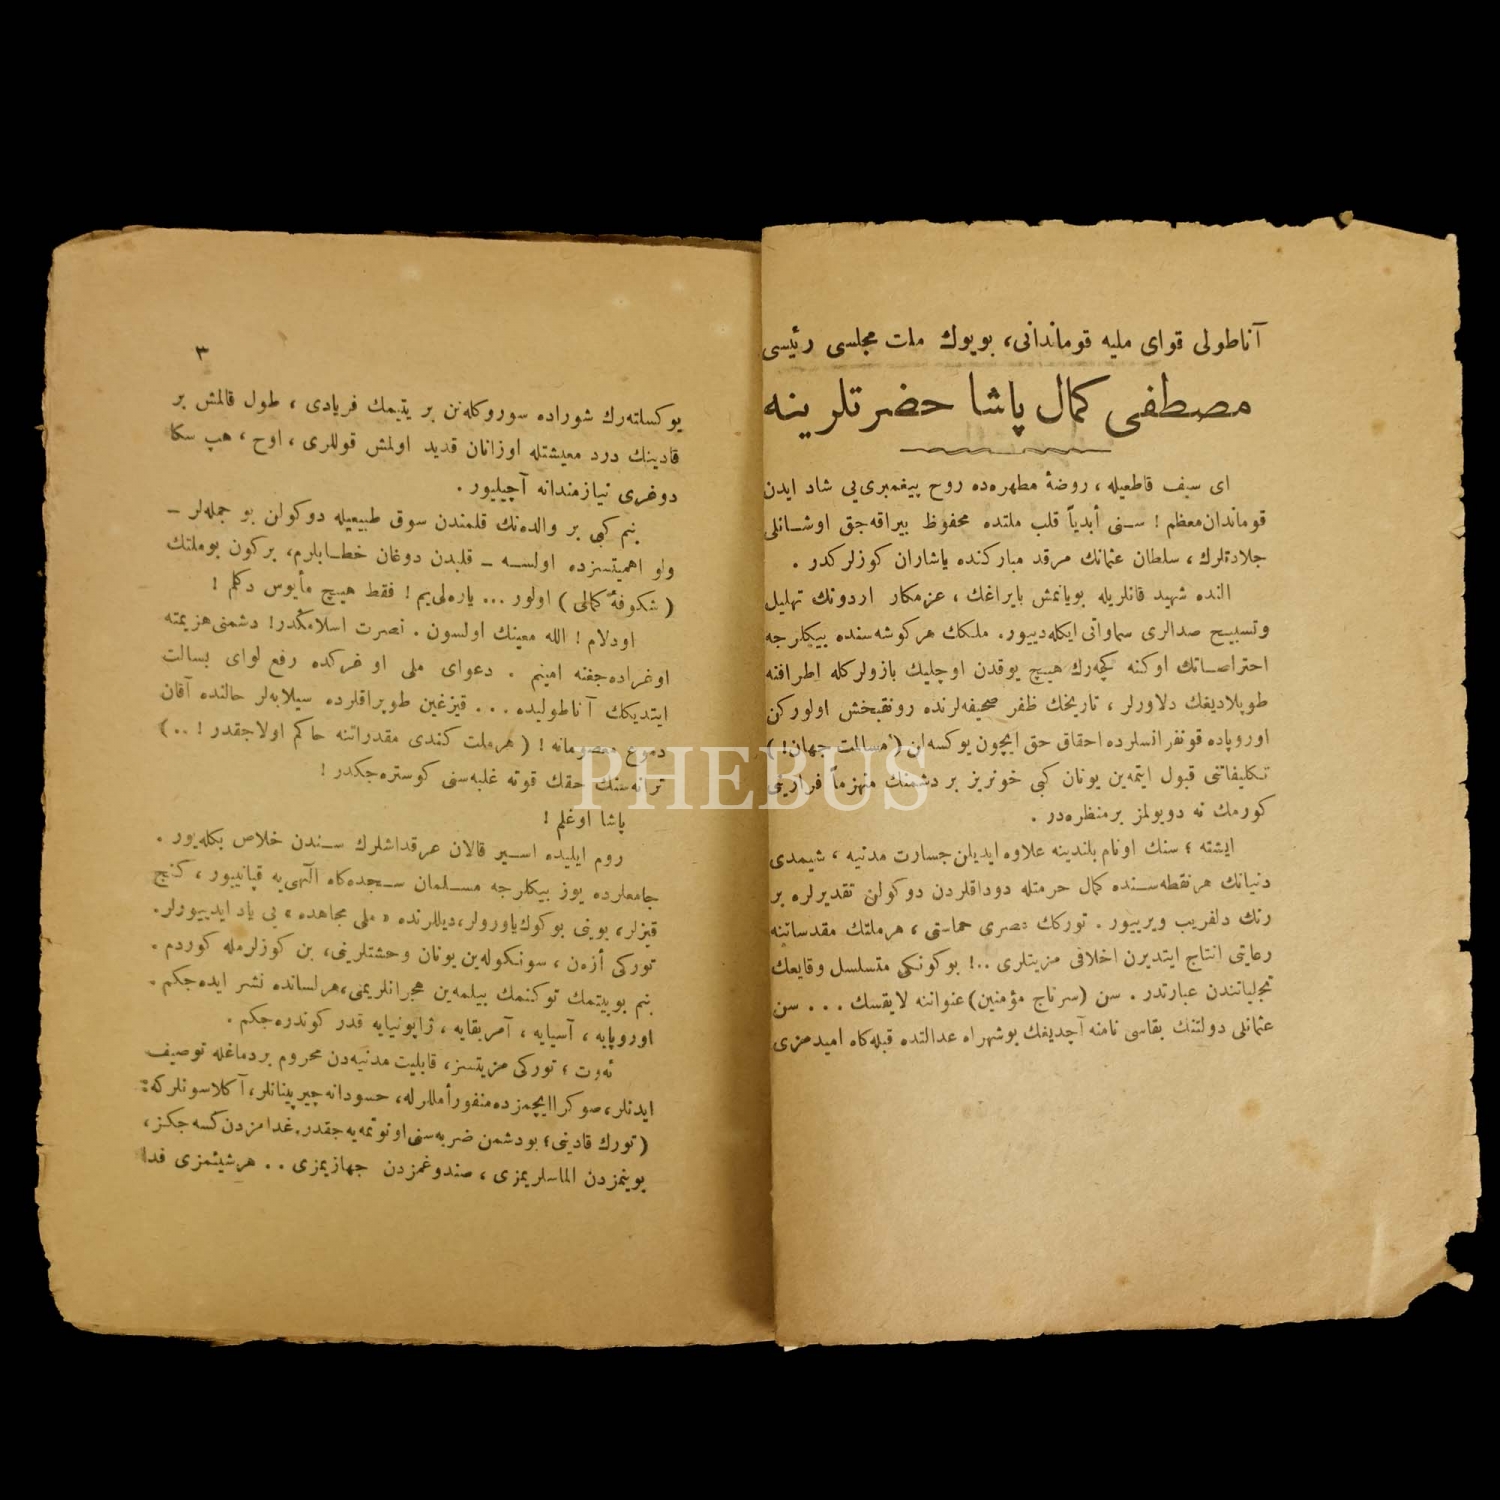 آناطولی قوای ملیه قوماندانی، بویوك ملت مجلسی رئیسی
مصطفی کمال پاشا حضرتلرینه
ای سیف قاطعیله ، روضهٔ مطهره‌ده روح پیغمبری‌یی شاد ایدن
قوماندان معظم ! سنی أبدیاً قلب ملتده محفوظ بیراقه‌جق اوشانلی
جلادتلرك ، سلطان عثمانك مرقد مبارکنده یاشاران کوزلرکدر .
النده شهید قانلریله بویانمش بایراغك ، عزمکار اردونك تهلیل
وتسبیح صدالری سماواتی ایکله‌دییور. ملکك هرکوشه‌سنده بیکلرجه
احتراصاتك اوکنه کچه‌رك هیچ یوقدن اوچلیك بازولرکله اطرافنه
طوپلادیغك دلاورلر ، تاریخك ظفر صحیفه‌لرنده رونقبخش اولورکن
اوروپاده قونفرانسلرده احقاق حق ایچون یوکسه‌لن ( مسالت جهان! )
تکلیفاتنی قبول ایتمه‌ین یونان کبی خونریز بر دشمنك منهزماً فرارینی
کورمك نه دویولمز برمنظره‌در .
ایشته ؛ سنك اونام بلندینه علاوه ایدیلن جسارت مدنیه ، شیمدی
دنیانك هرنقطه‌سنده کمال حرمتله دوداقلردن دوکولن تقدیرلره بر
رنك دلفریب ویرییور . تورکك عصری حماستی ، هرملتك مقدساتنه
رعایتی انتاج ایتدیرن اخلاقی مزیتلری ..! بوکونکی متسلسل وقایعك
تجلیاتندن عبارتدر . سن (سرتاج مؤمنین) عنواننه لایقسك . . . سن
عثمانلی دولتنك بقاسی نامنه آچدیغك بوشهراه عدالتده قبله‌کاه امیدمزی
٣
یوکسلته‌رك شوراده سوروکله‌نن بر یتیمك فریادی ، طول قالمش بر
قادینك درد معیشتله اوزانان قدید اولمش قوللری ، اوح ، هپ سکا
دوغری نیازمندانه آچیلیور .
بنم کبی بر والده‌نك قلمندن سوق طبیعیله دوکولن بو جمله‌لر —
ولو اهمیتسزده اولسه — قلبدن دوغان خطابلرم، برکون بوملتك
( شکوفهٔ کمالی ) اولور ... یاره‌لی‌یم ! فقط هیچ مأیوس دکلم !
اودلام ! الله معینك اولسون . نصرت اسلامکدر! دشمنی هزیمته
اوغراده‌جغنه امینم . دعوای ملی او غرکده رفع لوای بسالت
ایتدیکك آناطولیده . . . قیزغین طوپراقلرده سیلابه‌لر حالنده آقان
دموع معصومانه ! ( هرملت کندی مقدراتنه حاکم اولاجقدر ! .. )
ترانه‌سنك حقك قوته غلبه‌سنی کوستره‌جکدر !
پاشا اوغلم !
روم ایلیده اسیر قالان عرقداشلرك سندن خلاص بکله‌یور .
جامعلرده یوز بیکلرجه مسلمان سجده‌کاه الٓهی‌یه قپانییور ، کنج
قیزلر، بوینی بوکوك یاورولر، دیللرنده « ملی مجاهده » یی یاد ایدییورلر.
تورکی أزه‌ن ، سونکوله‌ین یونان وحشتلرینی، بن کوزلرمله کوردم .
بنم بوبیتمك توکنمك بیلمه‌ین هجرانلریمی، هرلسانده نشر ایده‌جکم .
اوروپایه ، آسیایه ، آمریقایه ، ژاپونیایه قدر کوندره‌جکم .
ئه‌وت ؛ تورکی مزیتسز، قابلیت مدنیه‌دن محروم بردماغله توصیف
ایدنلر، صوکرا ایچمزده منفور أمللرله، حسودانه چیرپینانلر، آکلاسونلرکه:
( تورك قادینی؛ بودشمن ضربه‌سنی اونوتمه‌یه‌جقدر. غدامزدن کسه‌جکز،
بوینمزدن الماسلریمزی ، صندوغمزدن جهازیمزی . . هرشیئمزی فدا
PHEBUS